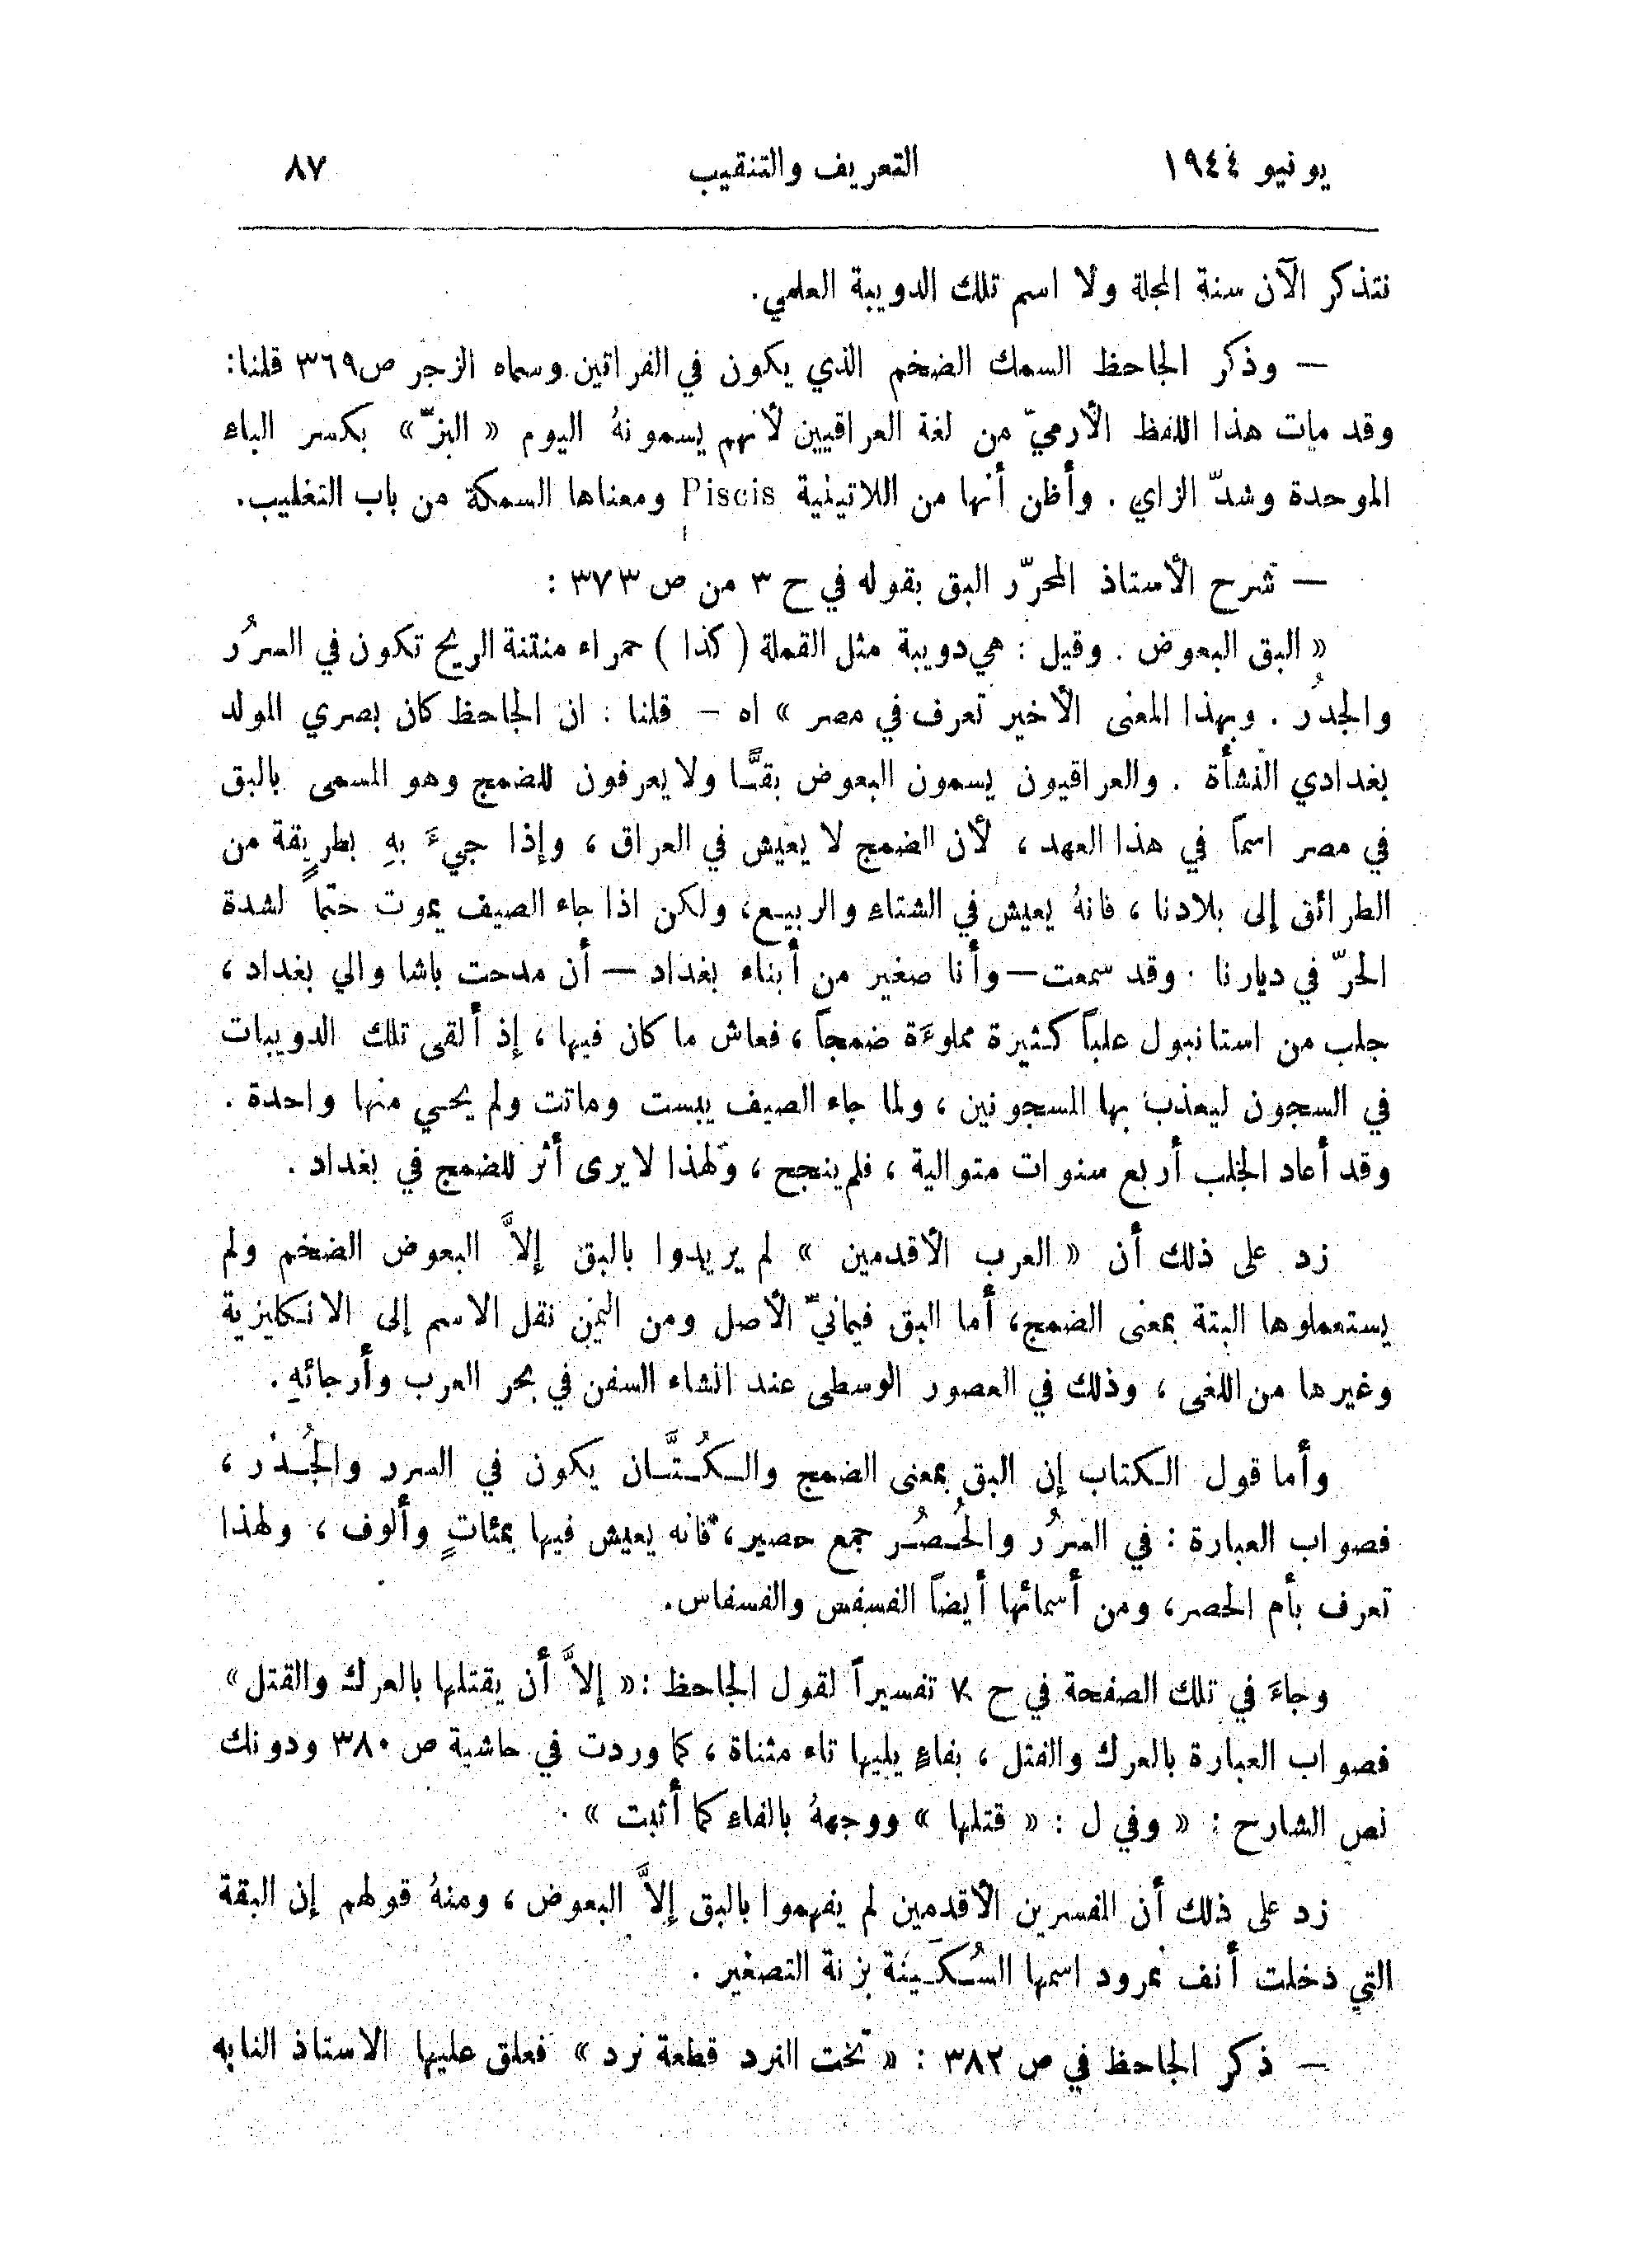 يونيو ١٩٤٤ التعريف والتنقيب ٨٧
نتذكر الآن سنة المجلة ولا اسم تلك الدويبة العلمي.
— وذكر الجاحظ السمك الضخم الذي يكون في الفراتين وسماه الزجر ص٣٦٩ قلنا:
وقد مات هذا اللفظ الأرميّ من لغة العراقيين لأنهم يسمونهُ اليوم « البزّ» بكسر الباء
الموحدة وشدّ الزاي . وأظن أنها من اللاتينية Piscis ومعناها السمكة من باب التغليب.
— شرح الأستاذ المحرّر البق بقوله في ح ٣ من ص ٣٧٣ :
« البق البعوض . وقيل : هي دويبة مثل القملة ( كذا ) حمراء منتنة الريح تكون في السرُر
والجدُر . وبهذا المعنى الأخير تعرف في مصر » اه – قلنا : ان الجاحظ كان بصري المولد
بغدادي النشأة . والعراقيون يسمون البعوض بقًّا ولا يعرفون للضمج وهو المسمى بالبق
في مصر اسماً في هذا العهد ، لأن الضمج لا يعيش في العراق ، وإذا جيءَ بهِ بطريقة من
الطرائق إلى بلادنا ، فانهُ يعيش في الشتاء والربيع، ولكن اذا جاء الصيف يموت حتماً لشدة
الحرّ في ديارنا . وقد سمعت — وأنا صغير من أبناء بغداد — أن مدحت باشا والي بغداد ،
جلب من استانبول علباً كثيرة مملوءَة ضمجاً ، فعاش ما كان فيها ، إذ ألقى تلك الدويبات
في السجون ليعذب بها المسجونين ، ولما جاء الصيف يبست وماتت ولم يحي منها واحدة .
وقد أعاد الجلب أربع سنوات متوالية ، فلم ينجح ، ولهذا لا يرى أثر للضمج في بغداد .
زد على ذلك أن « العرب الأقدمين » لم يريدوا بالبق إلاَّ البعوض الضخم ولم
يستعملوها البتة بمعنى الضمج، أما البق فيمانيّ الأصل ومن اليمن نقل الاسم إلى الانكليزية
وغيرها من اللغى ، وذلك في العصور الوسطى عند انشاء السفن في بحر العرب وأرجائهِ .
وأما قول الكتاب إن البق بمعنى الضمج والكُتَّان يكون في السرر والجُدُر ،
فصواب العبارة : في السرُر والحُصُر جمع حصير، فانه يعيش فيها بمئاتٍ وألوف ، ولهذا
تعرف بأم الحصر، ومن أسمائها أيضاً الفسفس والفسفاس.
وجاءَ في تلك الصفحة في ح ٧ تفسيراً لقول الجاحظ :« إلاَّ أن يقتلها بالعرك والقتل»
فصواب العبارة بالعرك والفتل ، بفاءٍ يليها تاء مثناة ، كما وردت في حاشية ص ٣٨٠ ودونك
نص الشارح : « وفي ل : « قتلها » ووجههُ بالفاء كما أثبت » .
زد على ذلك أن المفسرين الأقدمين لم يفهموا بالبق إلاَّ البعوض ، ومنهُ قولهم إن البقة
التي دخلت أنف نمرود اسمها السُكَينة بزنة التصغير .
— ذكر الجاحظ في ص ٣٨٢ : « تخت النرد قطعة نرد » فعلق عليها الاستاذ النابه